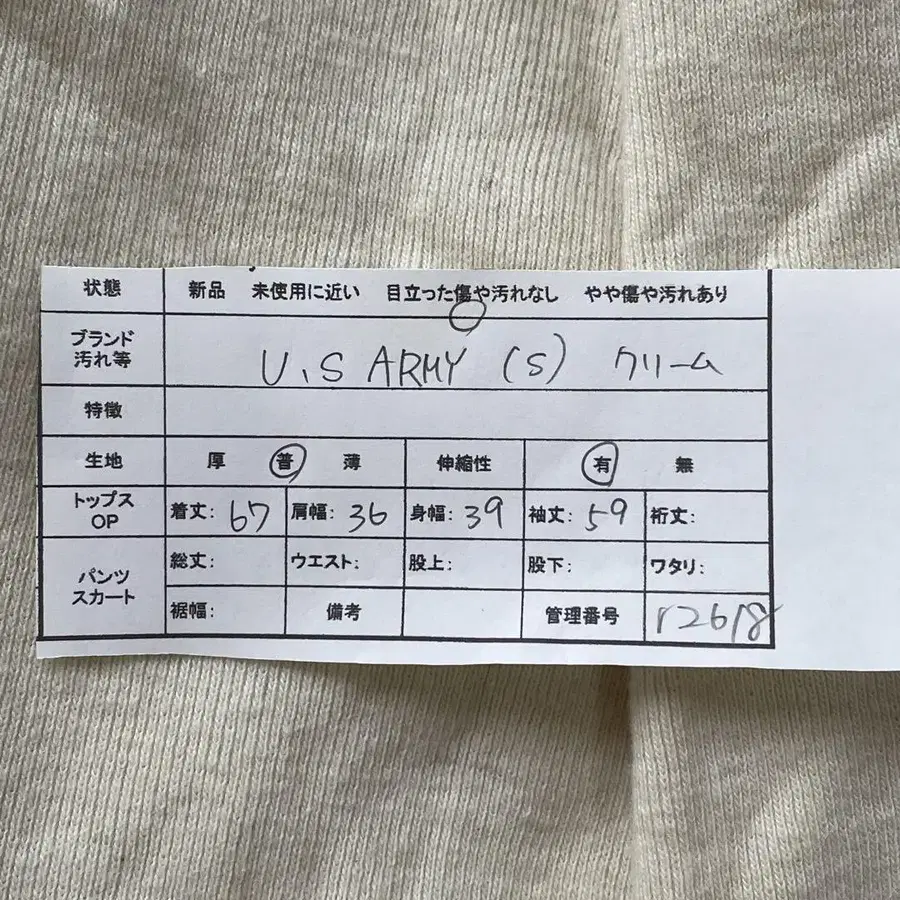 状態 新品 未使用に近い 目立った傷や汚れなし やや傷や汚れあり
ブランド
汚れ等 U.S ARMY (S) クリーム
特徴
生地 厚 普 薄 伸縮性 有 無
トップス
OP 着丈: 67 肩幅: 36 身幅: 39 袖丈: 59 裄丈:
パンツ
スカート 総丈: ウエスト: 股上: 股下: ワタリ:
裾幅: 備考 管理番号 12618